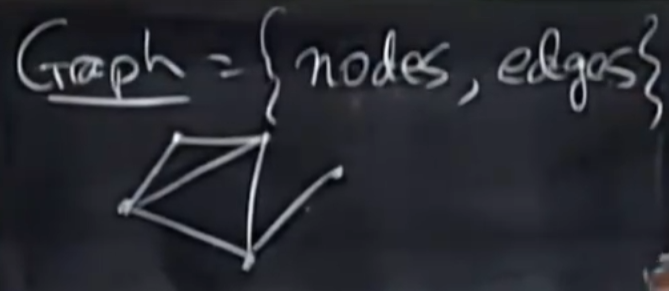 Graph = {nodes, edges}